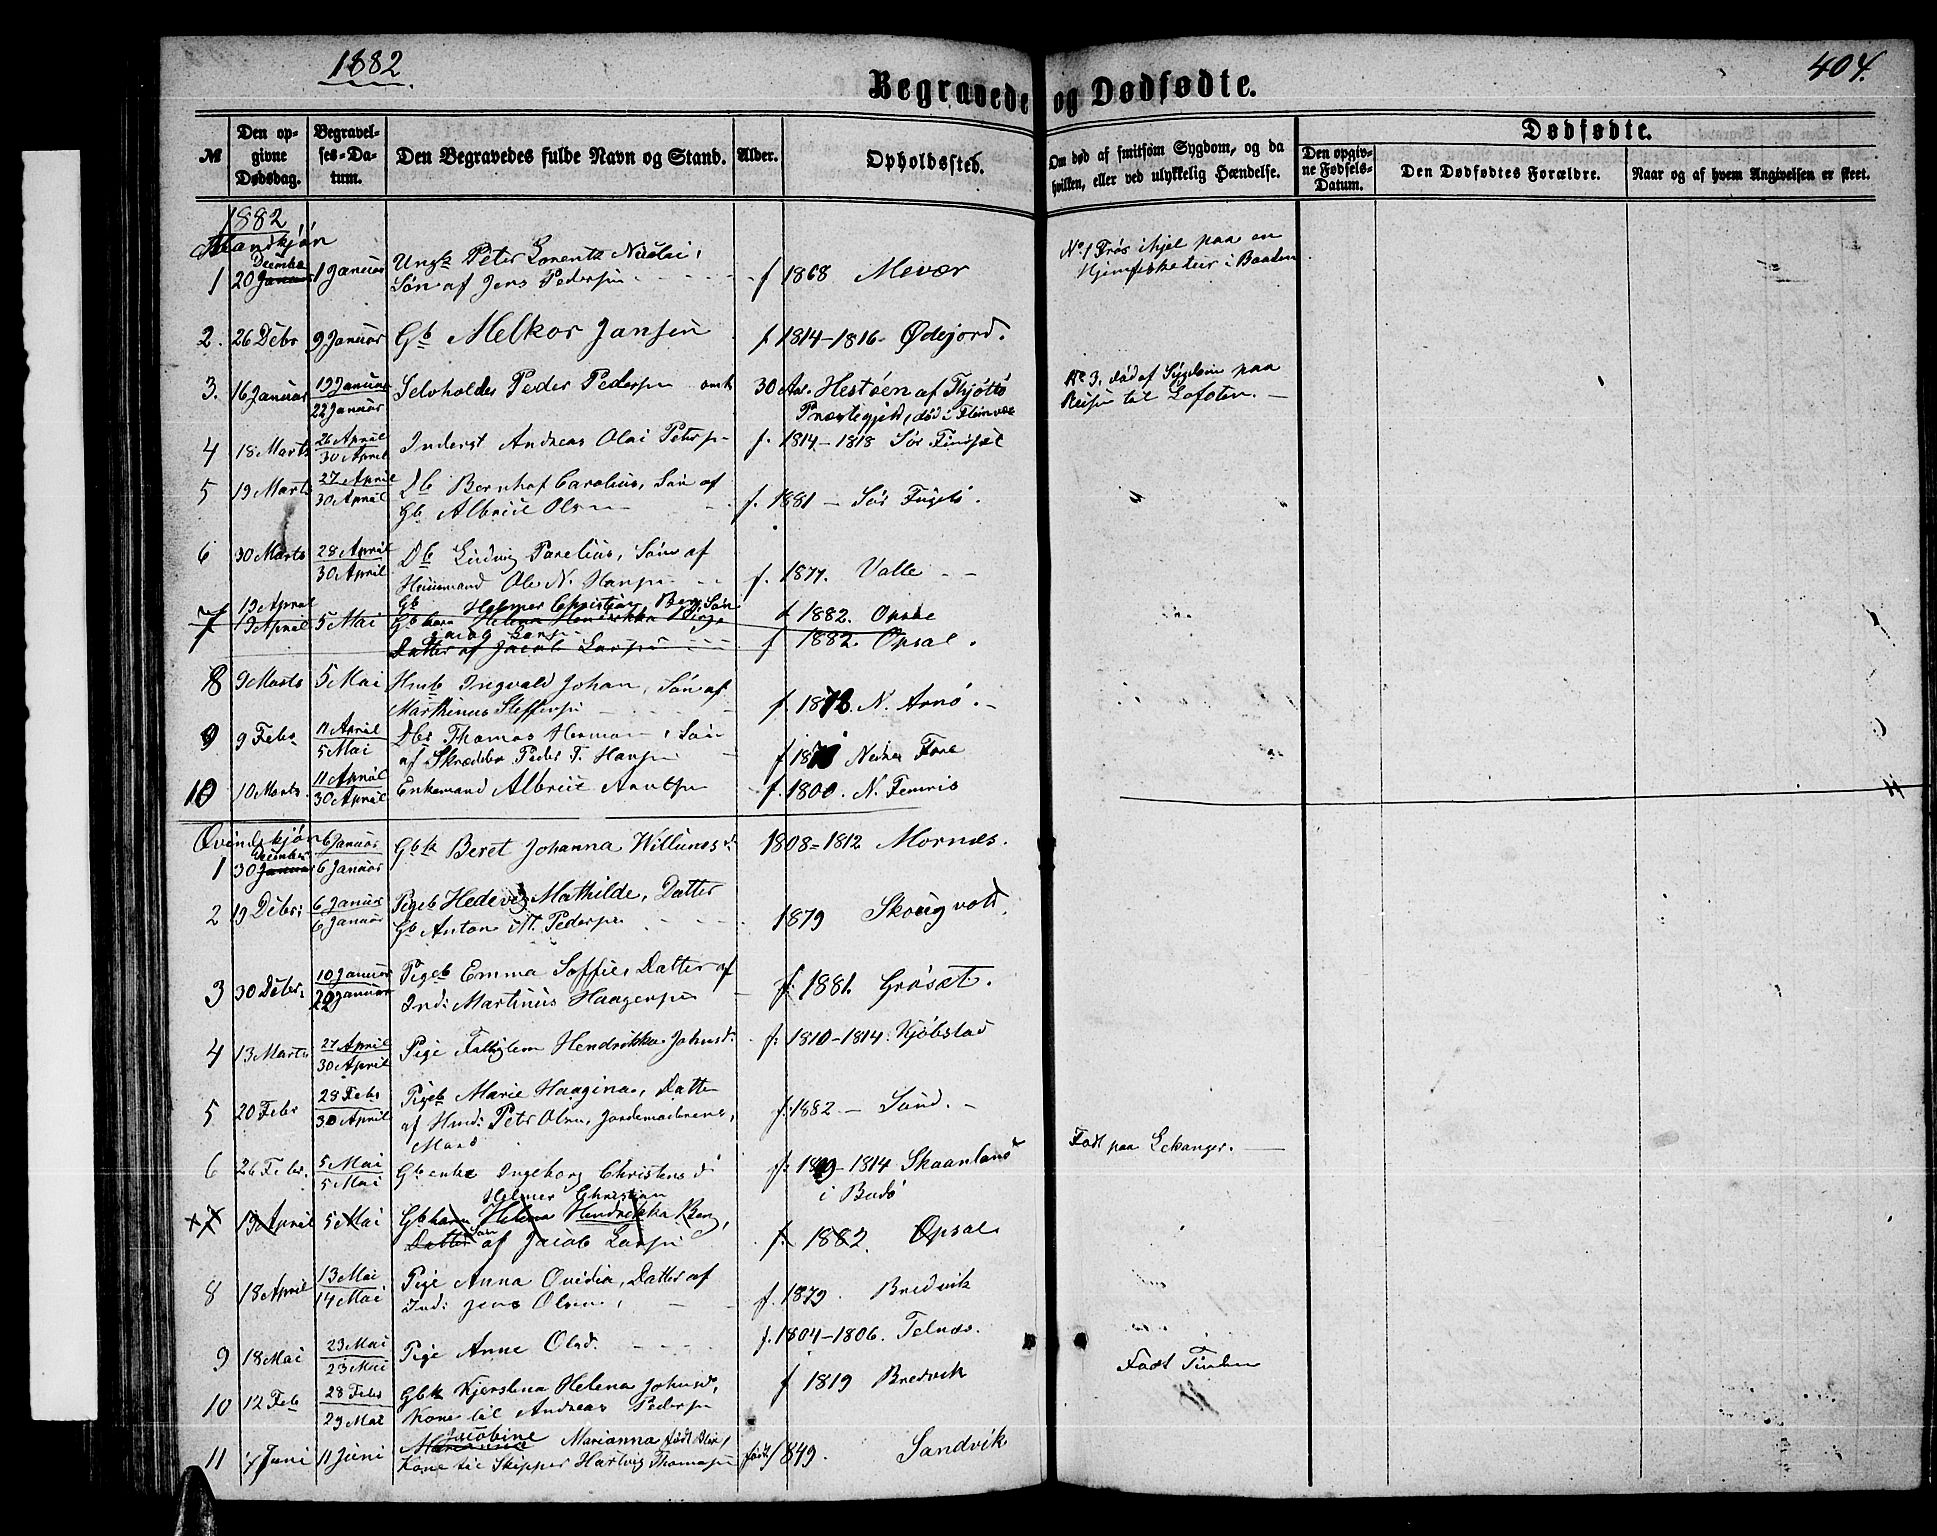 1882
404.
Begravede og Dødfødte.
№
Den opgivne Dødsdag.
Begravelses-Datum.
Den Begravedes fulde Navn og Stand.
Alder.
Opholdssted.
Om død af smitsom Sygdom, og da hvilken, eller ved ulykkelig Hændelse.
Dødfødte.
Den opgivne Fødsels-Datum.
Den Dødfødtes Forældre.
Naar og af hvem Angivelsen er skeet.
1882
Mandkjøn
1 20 Decembe Januar 1 Januar Ungk Peter Lorentz Nicolai, f 1868 Mevær No 1 Frøs ihjel paa en
Søn af Jens Pedersen Hjemfisketur i Baaden.
2. 26 Debr 9 Januar Gb Melkor Jansen f. 1814-1816- Ødejord.
3. 16 Januar 19 Januar 22 Januar Selvholder Peder Pedersen omk 30 Aar. Hestøen af Thjøttø No 3, død af Sygdom paa
Præstegjeld, død i Reisen til Lofoten.
4 18 Marts 26 April 30 April Inderst Andreas Olai Petersen f. 1814-1818 Sør
5 19 Marts 27 April 30 April Db Bernhof Carolius, Søn af
Gb Albrit Olsen f. 1881 - Sør
6 30 Marts 28 April 30 April Db Ludvig Parelius, Søn af
Huusmand Ole N. Hansen f. 1877. Valle
7 19 April Gb Helmer Christian Berg, Søn f 1882. Opsal
19 April 5 Mai Gb barn Helena Hendrikka Berg
af Jacob Larsen
Datter af Jacob Larsen f 1882 Opsal.
8 9 Marts 5 Mai Hmb Ingvald Johan, Søn af
Marthinus Steffensen f. N. Arnø.
9 9 Febr 11 April 5 Mai Db Thomas Herman, Søn
af Skrædder Peder T. Hansen f Nedre Fore
10 10 Marts 11 April 30 April Enkemand Albrit Arntsen f. 1800. N. Femris
Qvindekjøn
1 30 December Januar 6 Januar 6 Januar Gbk Beret Johanna Willumsd. 1808-1812 Mornæs.
2 19 Debr. 6 Januar 6 Januar Pigeb Hedevig Mathilde, Datter
Gb Anton M. Pedersen 1879 Skougvold.
3 30 Debr. 10 Januar 22 Januar Pigeb Emma Soffie, Datter af
Ind: Martinus Haagensen f. 1881. Grøsæt.
4 13 Marts 27 April 30 April Pige Fattiglem Hendrikka Johnsd. f. 1810-1814. Kjøbstad
5 20 Febr 28 Febr 30 April Pigeb Marie Haagina, Datter
af Hmd: Petr Olsen, Jordemoderens, f. 1882 - Sund.
Mand
6 26 Febr. 5 Mai 5 Mai Gb enke Ingeborg Christensd. -1814 Skaanland Født paa Lekanger.
i Bodø
7 19 April 5 Mai Gb barn Helena Hendrikka Berg,
Helmer Christian
Datter Søn af Jacob Larsen f. 1882. Opsal
8 18 April 13 Mai 14 Mai Pige Anna Ovidia, Datter af
Ind: Jens Olsen, f. 1879. Bredvik
9 18 Mai 23 Mai 23 Mai Pige Anne Olsd. f. 1804-1806. Telnæs.
10 12 Feb 28 Febr 29 Mai Gbk Kjerstena Helena Johnsd, f 1819 Bredvik Født
Kone til Andreas Pedersen
11 7 Juni 11 Juni Jacobine Marianna født Blix,
Kone til Skipper Hartvig Thomasen født 1849. Sandvik